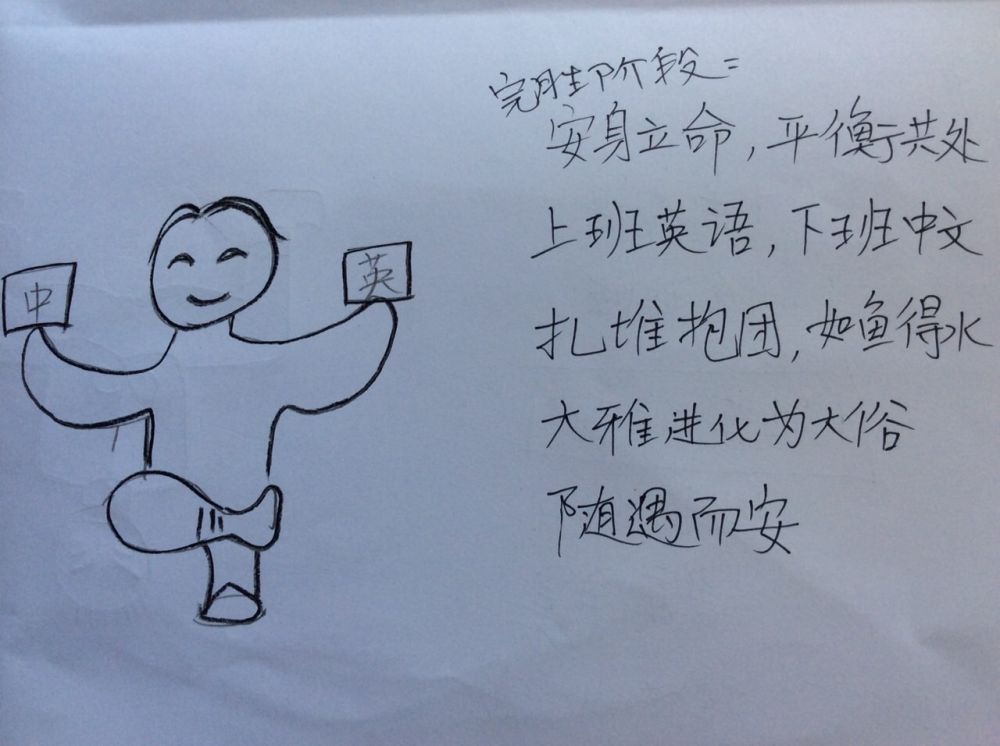 中
英
完胜阶段:
安身立命,平衡共处
上班英语,下班中文
扎堆抱团,如鱼得水
大雅进化为大俗
随遇而安